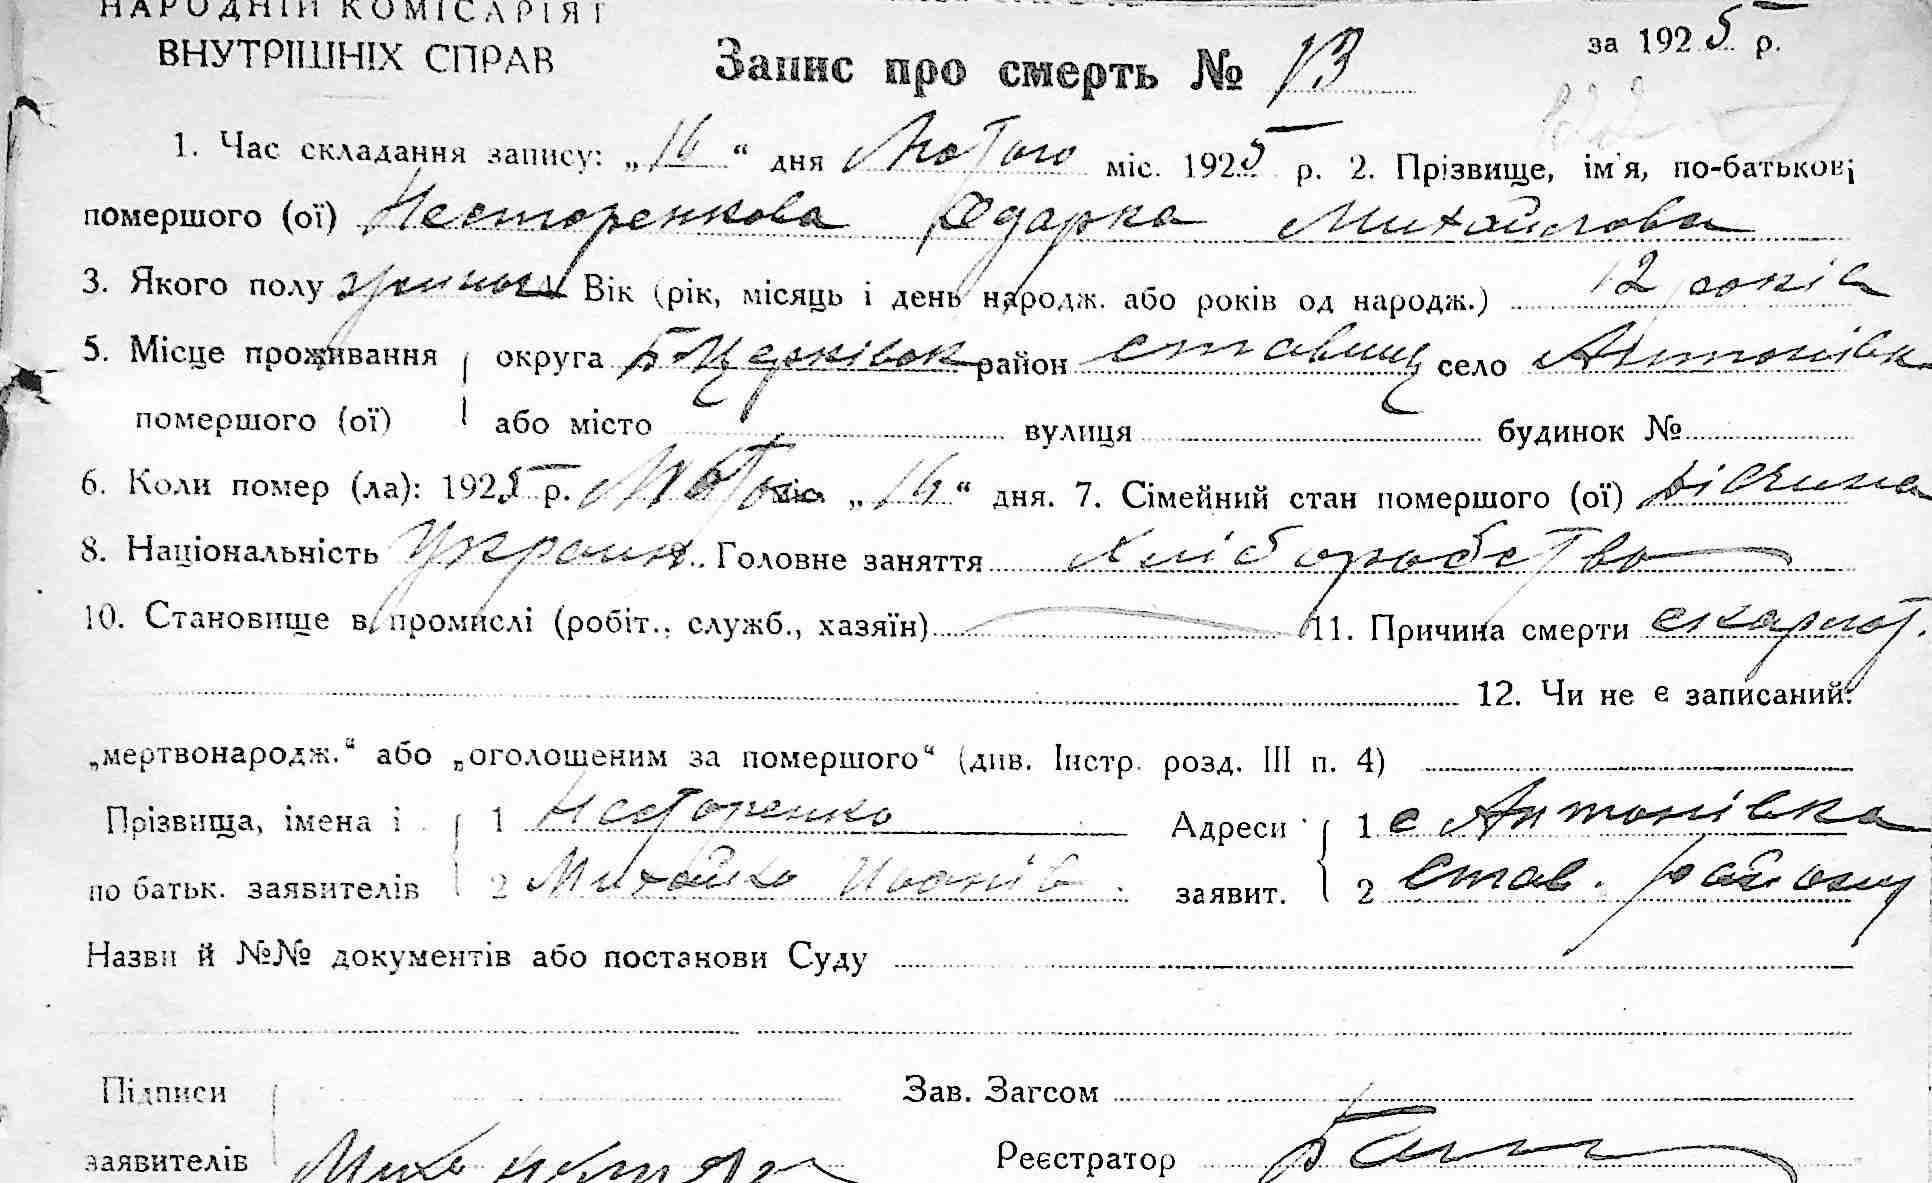 НАРОДНІЙ КОМІСАРІЯТ
ВНУТРІШНІХ СПРАВ
Запис про смерть № 13
за 1925 р.
1. Час складання запису: „16“ дня Лютого міс. 1925 р. 2. Прізвище, ім'я, по-батькові
помершого (ої) Несторенкова Одарка Михайлова
3. Якого полу жіночого Вік (рік, місяць і день народж. або років од народж.) 12 років
5. Місце проживання округа Б-Церківск район Ставищ село Антонівка
помершого (ої) або місто вулиця будинок №
6. Коли помер (ла): 1925 р. Лютого міс. „16“ дня. 7. Сімейний стан помершого (ої) дівчина
8. Національність Україн. Головне заняття хліборобство
10. Становище в промислі (робіт., служб., хазяїн) 11. Причина смерти скарлат.
12. Чи не є записаний:
„мертвонародж.“ або „оголошеним за помершого“ (див. Інстр. розд. III п. 4)
Прізвища, імена і 1 Несторенко Адреси 1 с Антонівка
по батьк. заявителів 2 Михайло Іванів заявит. 2 Став. району
Назви й №№ документів або постанови Суду
Підписи Зав. Загсом
заявителів Реєстратор